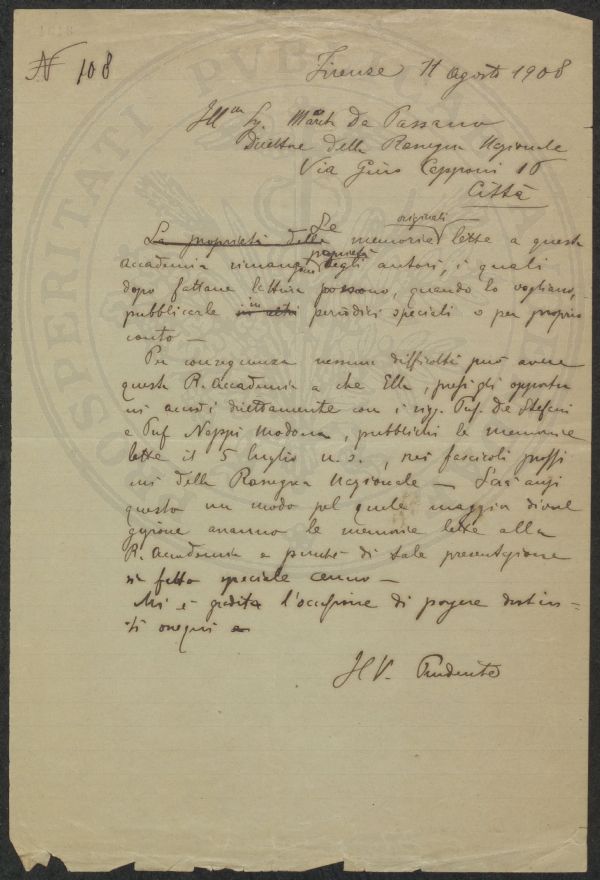 N 108
Firenze 11 agosto 1908
Ill.mo Sg. March. Da Passano
Direttore della Rassegna Nazionale
Via Gino Capponi 46
Città
La proprietà delle Le memorie originali lette a questa
accademia rimane proprietà degli autori, i quali
dopo fattane lettura possono, quando lo vogliano,
pubblicarle in altri in periodici speciali o per proprio
conto —
Per conseguenza nessuna difficoltà può avere
questa R. Accademia a che Ella, presi gli opportu
ni accordi direttamente con i sigg. Prof. De Stefani
e Prof Modona, pubblichi le memorie
lette il 5 luglio u.s., nei fascicoli prossi
mi della Rassegna Nazionale — Sarà anzi
questo un modo pel quale maggior divul
gazione avranno le memorie lette alla
R. Accademia e di tale presentazione
si fatto speciale cenno —
Mi è gradita l'occasione di porgere distin=
ti ossequi
Il V. Presidente
PUBLICA
PROSPERITATI